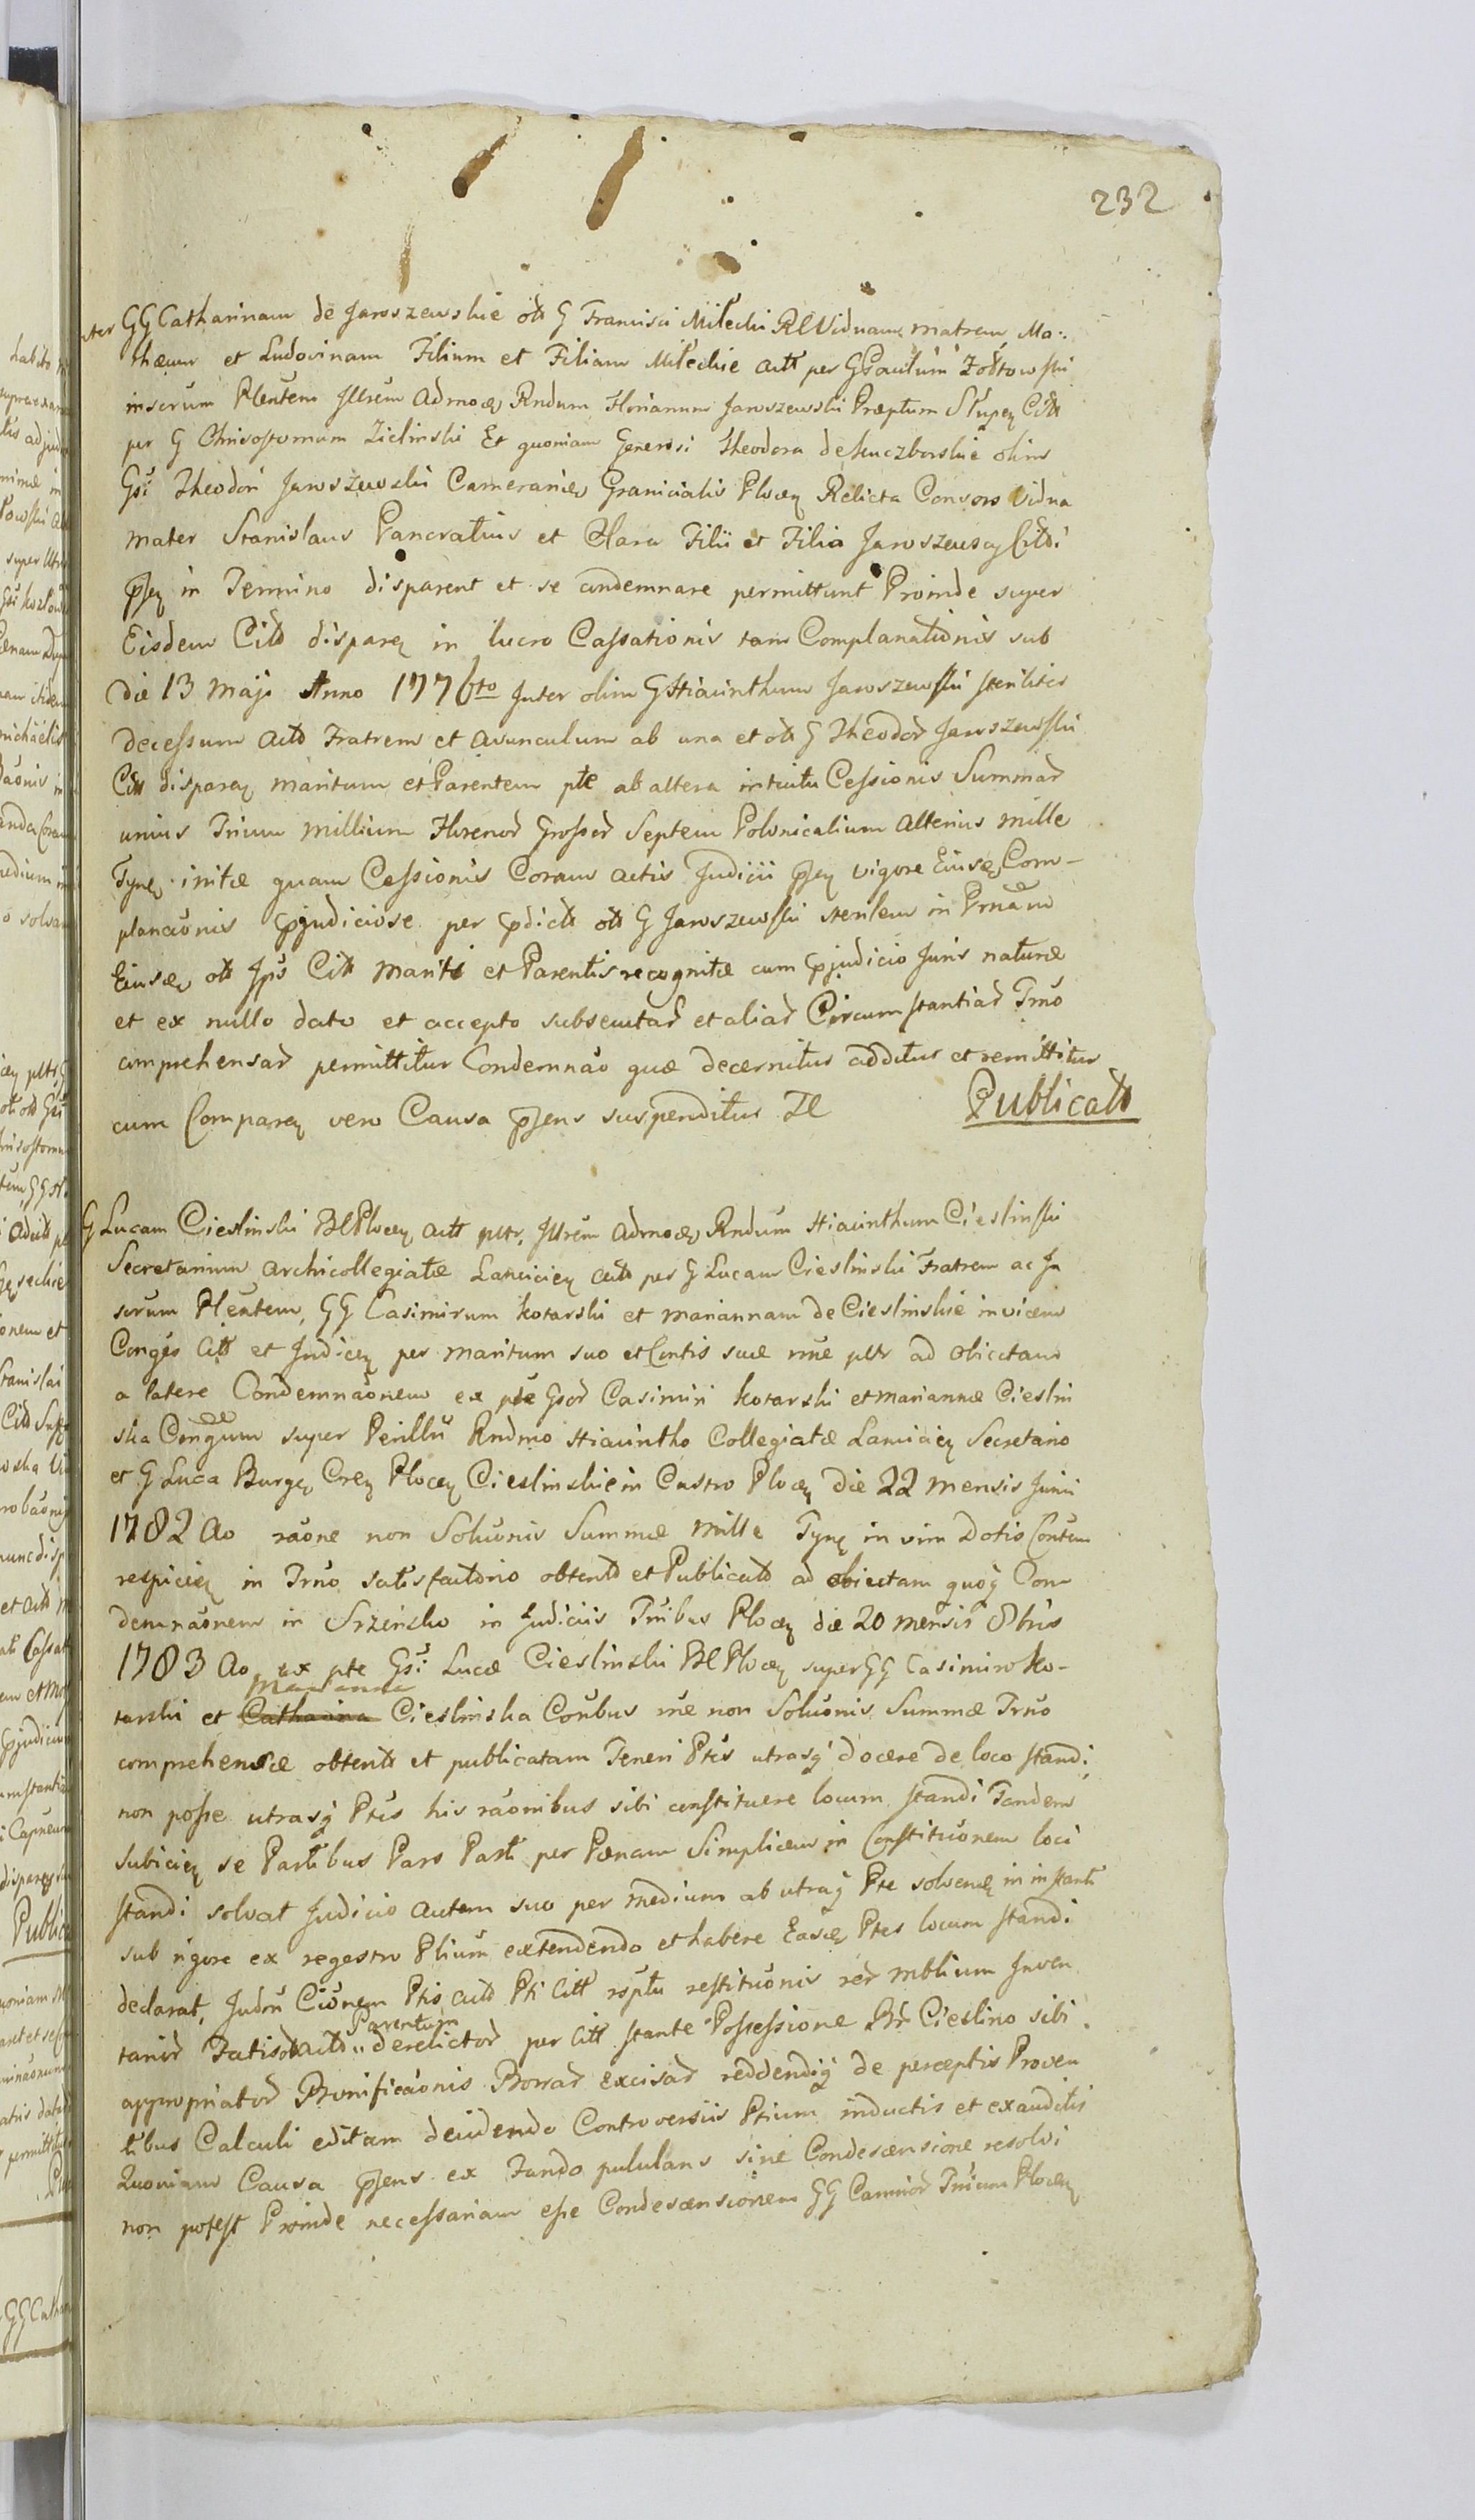 232
Inter GG Catharinam de Jaroszewskie olt G Francisci Miłecki RC Viduam matrem, Ma:
thæum et Ludovinam Filium et Filiam Miłeckie actt per G Paulum Żołtowski
inserum Plentem Jllrem Admod Rndum Florianum Jaroszewski Præptum Słupeņ Citt
per G Chrisostomum Zielinski Et quoniam Generosi Theodora de Kuczborskie olim
Gsi Theodori Jaroszewski Camerarii Granicialis Ploceņ Relicta Consors Vidua
mater Stanislaus Pancratius et Clara Filii et Filia Jaroszewscy Citdi
pseņ in Termino disparent et se condemnare permittunt Proinde super
Eisdem Citd dispareņ in lucro Cassationis tam Complanationis sub
die 13 maji Anno 1776to Inter olim G Hiacinthum Jaroszewski steriliter
decessum actd Fratrem et avunculum ab una et olt G Theodor Jaroszewski
Citt dispareņ maritum et Parentem pte ab altera intuitu Cessionis Summar
unius Trium millium Florenor Grossor Septem Polonicalium alterius mille
Tynf. initæ quam Cessionis Coram actis Judicii pseņ vigore Eiusd Com-
planaonis pjudiciose per pdictt olt G Jaroszewski sterilem in Prnam
Eiusd olt Jps Citt mariti et Parentis recognitæ cum pjudicio Juris naturæ
et ex nullo dato et accepto subsecutar et aliar Circumstantiar Trno
comprehensar permittitur Condemnao quæ decernitur additur et remittitur
cum Compareņ vero Causa psens suspenditur Tl
Publicatt
G Lucam Cieslinski BC Ploceņ actt pltr, Jllrem Admod Rndum Hiacinthum Cieslinski
Secretarium Archicollegiatæ Lancicieņ actd per G Lucam Cieslinski Fratrem ac In
serum Plentem, GG Casimirum Kotarski et mariannam de Cieslinskie invicem
Conges Citt et Judiceņ per maritum suo et Contis suæ nne pltr ad obicetam
a latere Condemnaonem ex pte Gsor Casimiri Kotarski et mariannæ Cieslin
ska Congum super Perillu Rndmo Hiacintho Collegiatæ Lancicieņ Secretario
et G Luca Burgņ Creņ Ploceņ Cieslinskie in Castro Ploceņ die 22 mensis Junii
1782 Ao raone non Soluonis Summæ mille Tynf in vim Dotis Contem
respicieņ in Trno satisfactorio obtentd et Publicatd ad obiectam quoq Con
demnaonem in Srzensko in Judiciis Tribus Ploceņ die 20 mensis 8bris
1783 Ao ex pte Gsi Lucæ Cieslinski BC Ploceņ super GG Casimiro Ko-
tarski et Catharina Marianna Cieslinska Conbus rne non Soluonis Summæ Trno
comprehensæ obtentt et publicatam Teneri Ptes utrasq docere de loco standi
non posse utrasq Ptes his raonibus sibi constituere locum standi Tandem
subicieņ se Partibus Pars Parti per Pœnam Simplicem in Constituonem loci
standi solvat Judicio autem suo per medium ab utraq Pte solvend in instanti
sub rigore ex regestro Ptium extendendo et habere Easd Ptes locum standi
declarat, Judm Cionem Ptis actd Pti Citt rsptu restituonis rer mblium Inven
tarior Fatisor actd Parentum derelictor per Citt stante Possessione Br Cieslino sibi
appropriator Bonificaonis Borrar excisar reddendiq de perceptis Proven
tibus Calculi editam deiudendo Controversiis Ptium inductis et exauditis
Quoniam Causa psens ex Fundo pululans sine Condescensione resolvi
non potest Proinde necessariam esse Condescensionem GG Camrior Trium Ploceņ